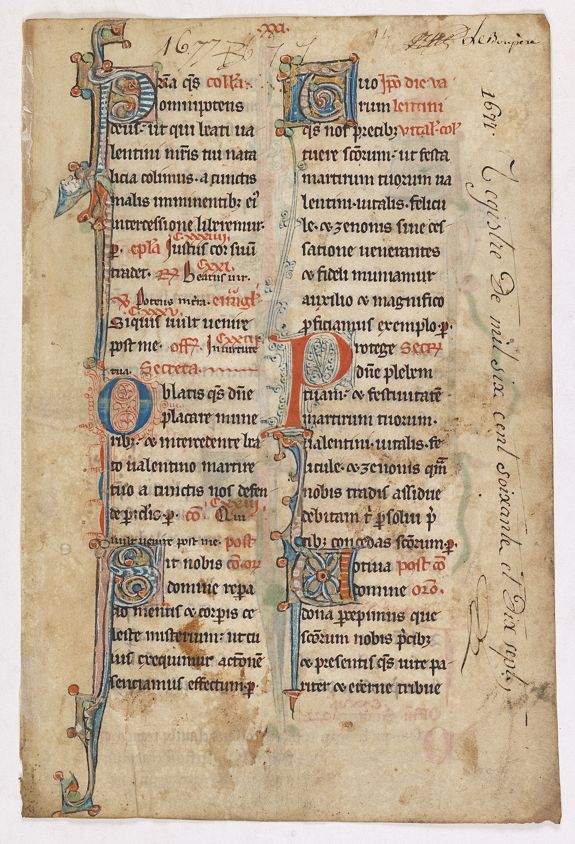 .XXI.
1677
resta q̄s collā.
omnipotens
deus. ut qui beati ua
lentini m̄ris tui nata
licia colimus. a cunctis
malis imminentib; ei᷒
intercessione liberemur.
p. epl̄a Iustus cor suū
tradet. Beatus uir.
V Potens in t̄ra. euāgl̄.
CXXXV.
Siquis uult uenire
post me. off. In uirtute
tua. Secreta.
Oblatis q̄s dn̄e
placare mune
rib; & intercedente bea
to ualentino martire
tuo a cunctis nos defen
de periclis. p. cō Qui
uult uenire post me. post
Sit nobis cō. or̄
domine repa
tio mentis & corpis ce
leste misterium. ut cu
ius exequimur actionē
sentiamus effectum. p.
Quo ip̄o die ua
rum lentini
q̄s nos precib; uital᷒. col᷒
tuere scōrum. ut festa
martirum tuorum ua
lentini. uitalis. felicu
le. & zenonis sine ces
satione uenerantes
& fideli muniamur
auxilio & magnifico
pficiamus exemplo. p.
Protege Secret̄
dn̄e plebem
tuam. & festiuitatē
martirum tuorum.
ualentini. uitalis. fe
licule. & zenonis quā
nobis tradis assidue
debitam t̄ p̄solui p̄
cib; concedas scōrum. p.
Votiua post cō
domine orō.
dona p̄cepimus que
scōrum nobis p̄cib;
& presentis q̄s uite pa
riter & eterne tribue
1677. Registre De mil six cent soixante et Dix sept,